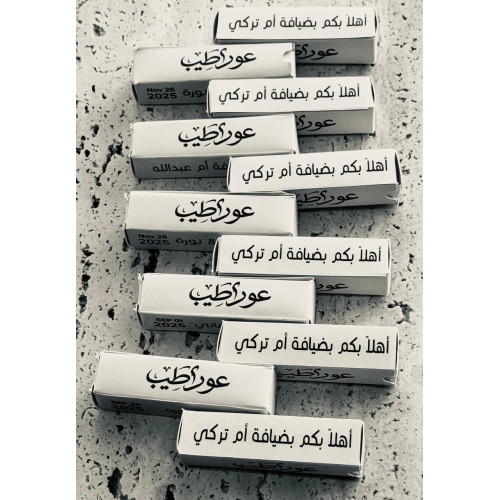 أهلاً بكم بضيافة أم تركي
عود طيب
Nov 26
2025
نورة
أهلاً بكم بضيافة أم تركي
عود طيب
أم عبدالله
أهلاً بكم بضيافة أم تركي
عود طيب
عود طيب
Nov 26
2025
نورة
أهلاً بكم بضيافة أم تركي
عود طيب
SEP 01
2025
أهلاً بكم بضيافة أم تركي
عود طيب
عود طيب
2025
أهلاً بكم بضيافة أم تركي